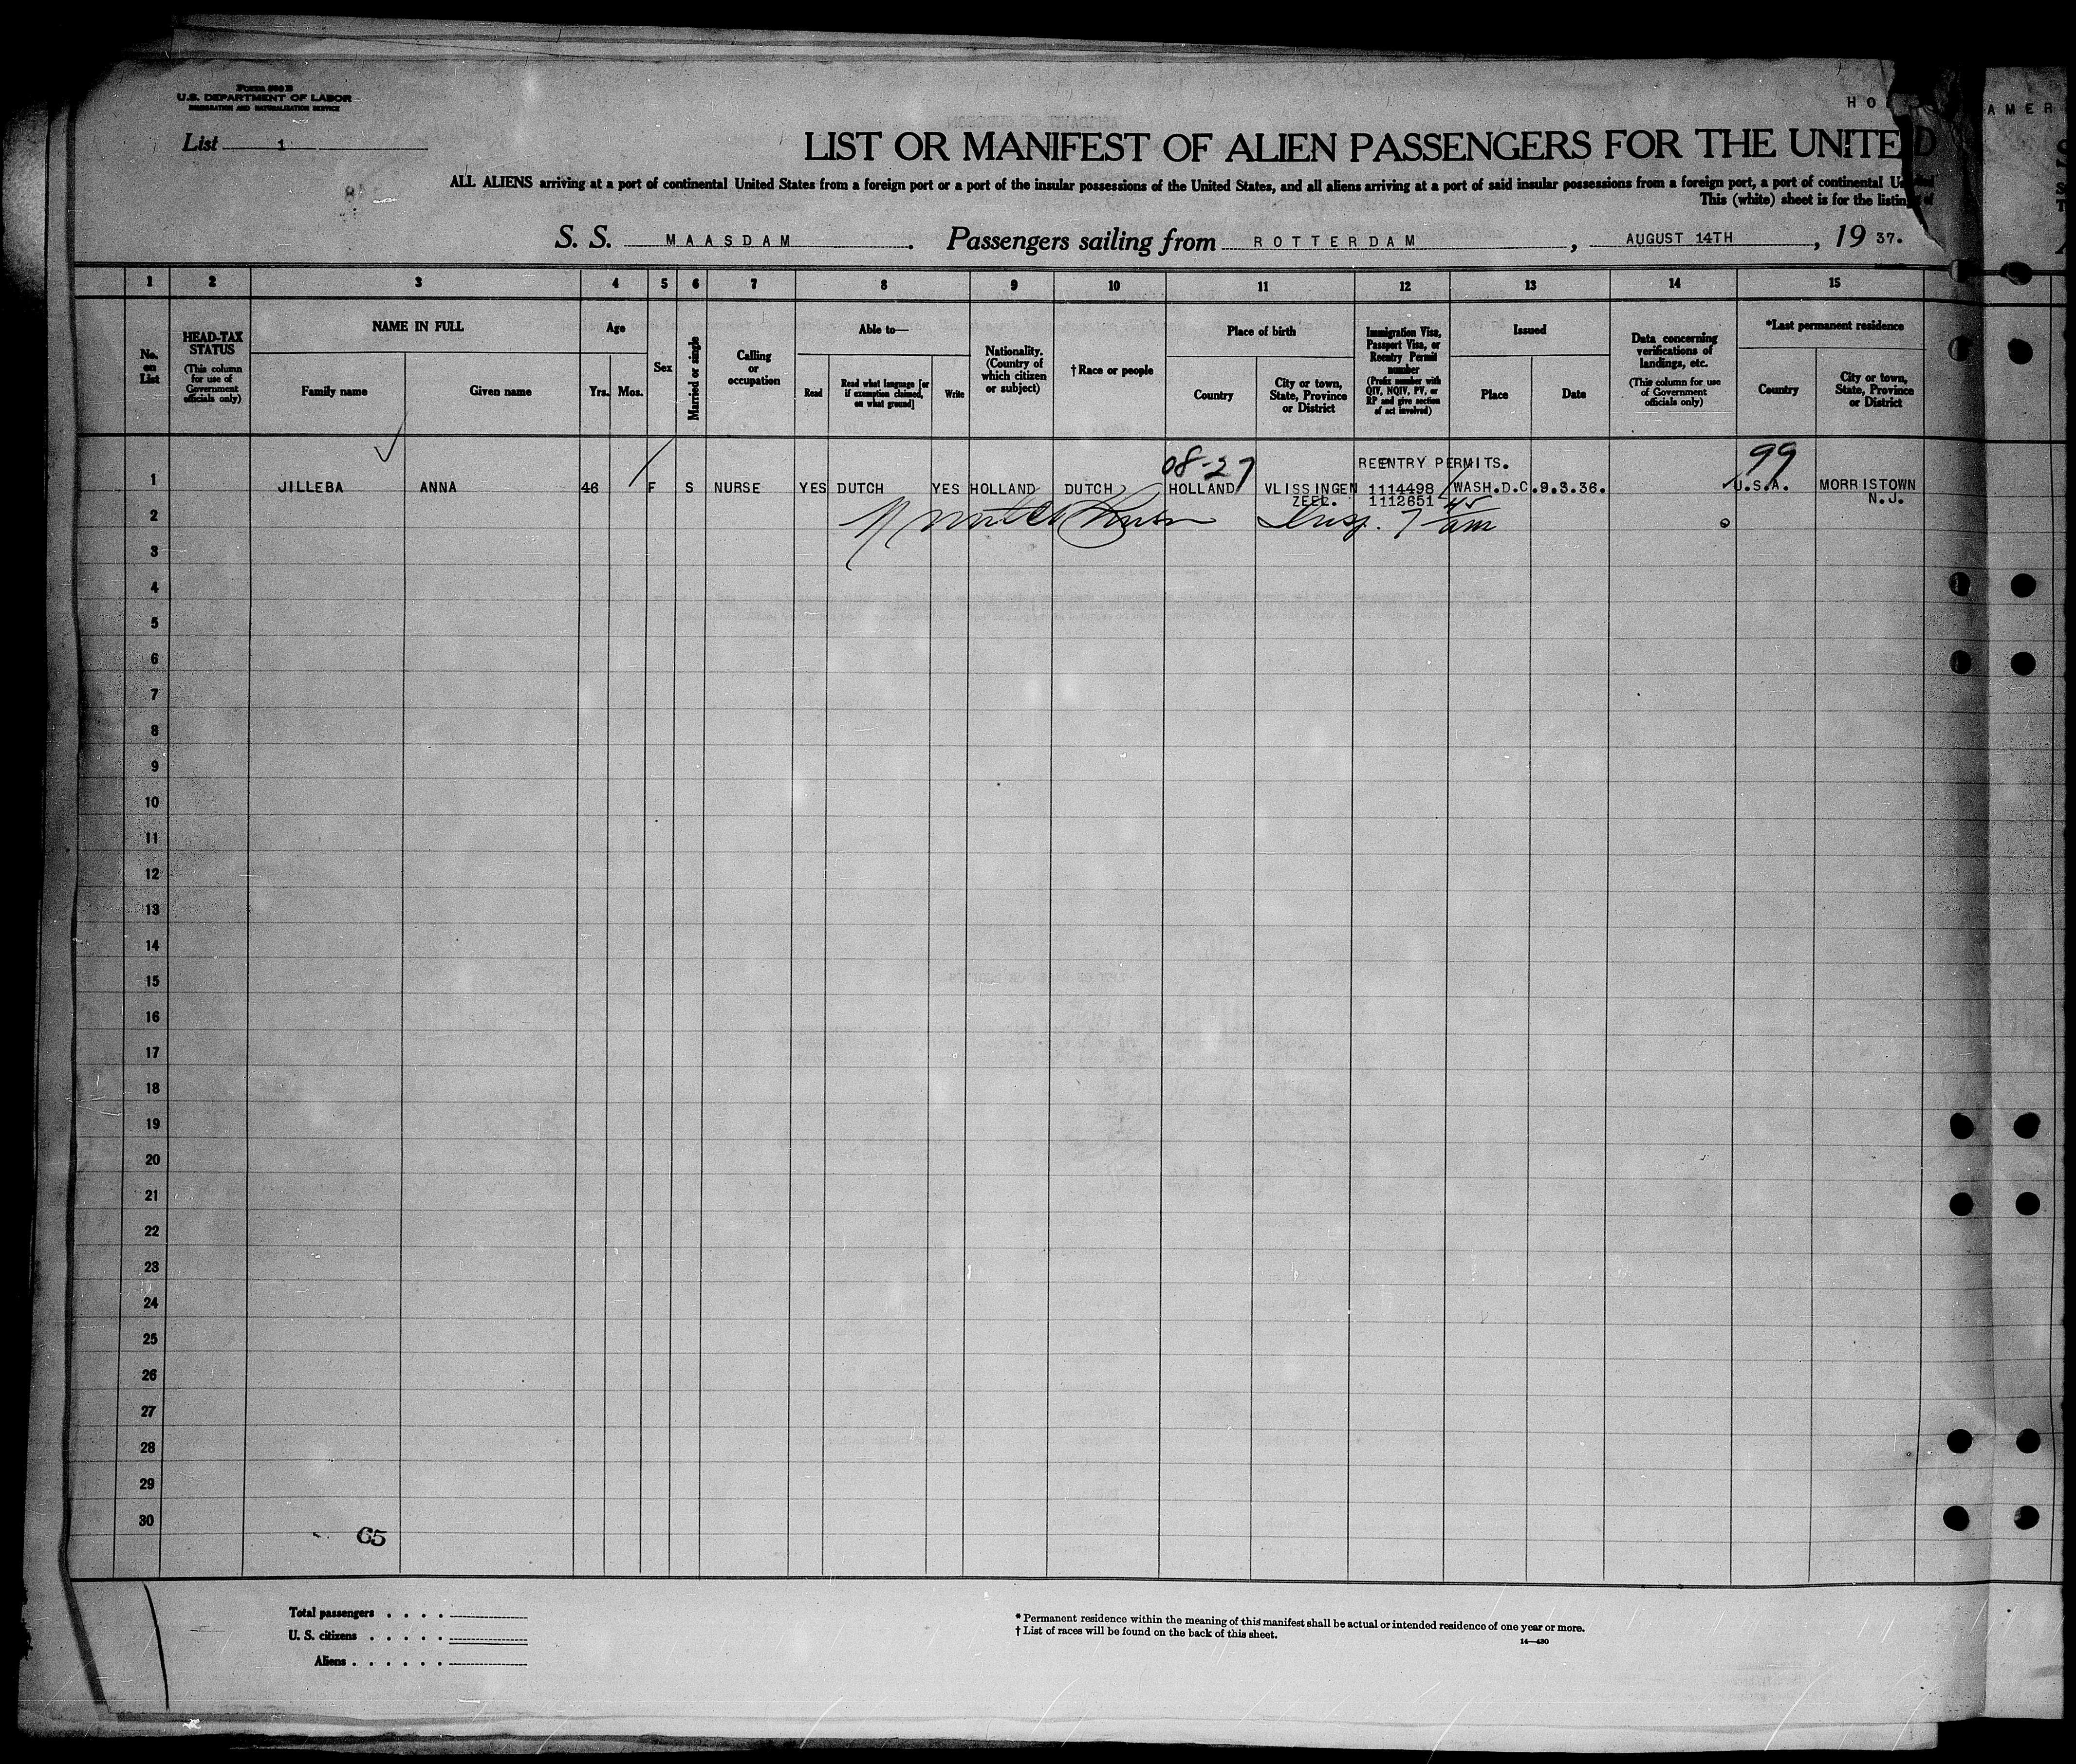 Form 500 B
U.S. DEPARTMENT OF LABOR
IMMIGRATION AND NATURALIZATION SERVICE
List 1
AMER
LIST OR MANIFEST OF ALIEN PASSENGERS FOR THE UNITED
ALL ALIENS arriving at a port of continental United States from a foreign port or a port of the insular possessions of the United States, and all aliens arriving at a port of said insular possessions from a foreign port, a port of continental
This (white) sheet is for the listing of
S. S. MAASDAM. Passengers sailing from ROTTERDAM, AUGUST 14TH, 19 37.
1 2 3 4 5 6 7 8 9 10 11 12 13 14 15
No. on List
HEAD-TAX STATUS (This column for use of Government officials only)
NAME IN FULL
Family name Given name
Age
Yrs. Mos.
Sex
Married or single
Calling or occupation
Able to—
Read
Read what language [or if exemption claimed, on what ground]
Write
Nationality. (Country of which citizen or subject)
†Race or people
Place of birth
Country
City or town, State, Province or District
Immigration Visa, Passport Visa, or Reentry Permit number (Prefix number with QIV, NQIV, PV, or RP and give section of act involved)
Issued
Place Date
Data concerning verifications of landings, etc. (This column for use of Government officials only)
*Last permanent residence
Country
City or town, State, Province or District
08-27 REENTRY PERMITS. 99
1 JILLEBA ANNA 46 F S NURSE YES DUTCH YES HOLLAND DUTCH HOLLAND VLISSINGEN 1114498 WASH.D.C. 9.3.36. U.S.A. MORRISTOWN
ZEEL. 1112851 N.J.
2 Insp. 7 45 am
3
4
5
6
7
8
9
10
11
12
13
14
15
16
17
18
19
20
21
22
23
24
25
26
27
28
29
30
65
Total passengers . . . .
U. S. citizens . . . . .
Aliens . . . . . .
* Permanent residence within the meaning of this manifest shall be actual or intended residence of one year or more.
† List of races will be found on the back of this sheet.
14—430